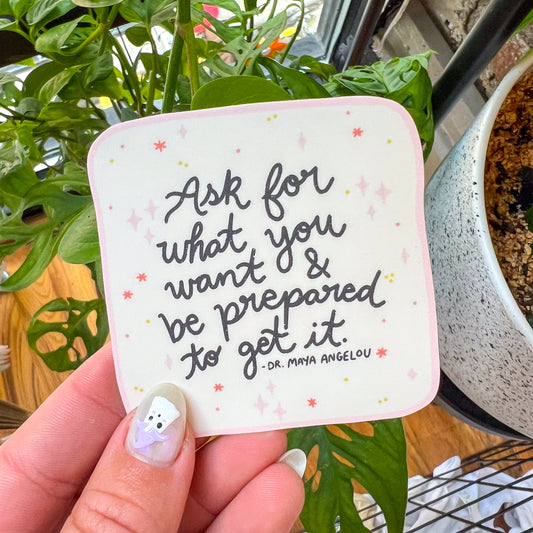 Ask for
what you
want &
be prepared
to get it.
- DR. MAYA ANGELOU